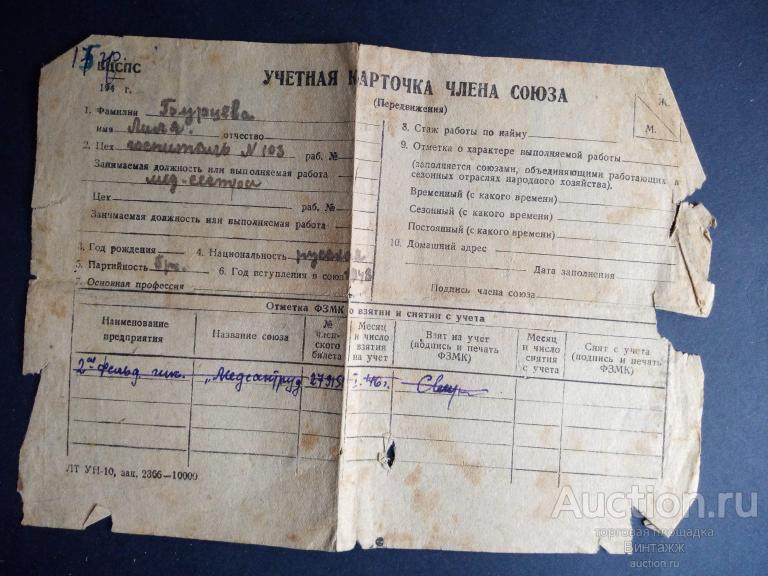 ВЦСПС
194 г.
УЧЕТНАЯ КАРТОЧКА ЧЛЕНА СОЮЗА
(Передвижения)
Ж.
М.
1. Фамилия Бурцева
имя Лилия. отчество
2. Цех госпиталь N 103 раб. №
Занимаемая должность или выполняемая работа
мед-сестра
Цех раб. №
Занимаемая должность или выполняемая работа
3. Год рождения 4. Национальность русская
5. Партийность бр. 6. Год вступления в союз 1943
7. Основная профессия
8. Стаж работы по найму
9. Отметка о характере выполняемой работы
(заполняется союзами, объединяющими работающих в
сезонных отраслях народного хозяйства).
Временный (с какого времени)
Сезонный (с какого времени)
Постоянный (с какого времени)
10. Домашний адрес
Дата заполнения
Подпись члена союза
Отметка ФЗМК о взятии и снятии с учета
Наименование предприятия
Название союза
№ членского билета
Месяц и число взятия на учет
Взят на учет (подпись и печать ФЗМК)
Месяц и число снятия с учета
Снят с учета (подпись и печать ФЗМК)
2ая фельд. „Медсантруд I. 46 г.
ЛТ УН-10, зак. 2366—10000
Auction.ru
торговая площадка
Винтажж
auction.ru